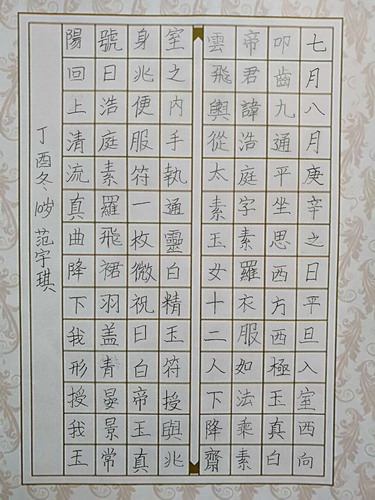 七月八月庚辛之日平旦入室西向
叩齒九通平坐思西方西極王真白
帝君諱浩庭字素羅衣服如法乘素
雲飛輿從太素玉女十二人下降齋
室之内手執通靈白精玉符授與兆
身兆便服符一枚微祝曰白帝王真
號曰浩庭素羅飛裙羽盖青晏景常
陽回上清流真曲降下我形授我玉
丁酉冬10岁范宇琪